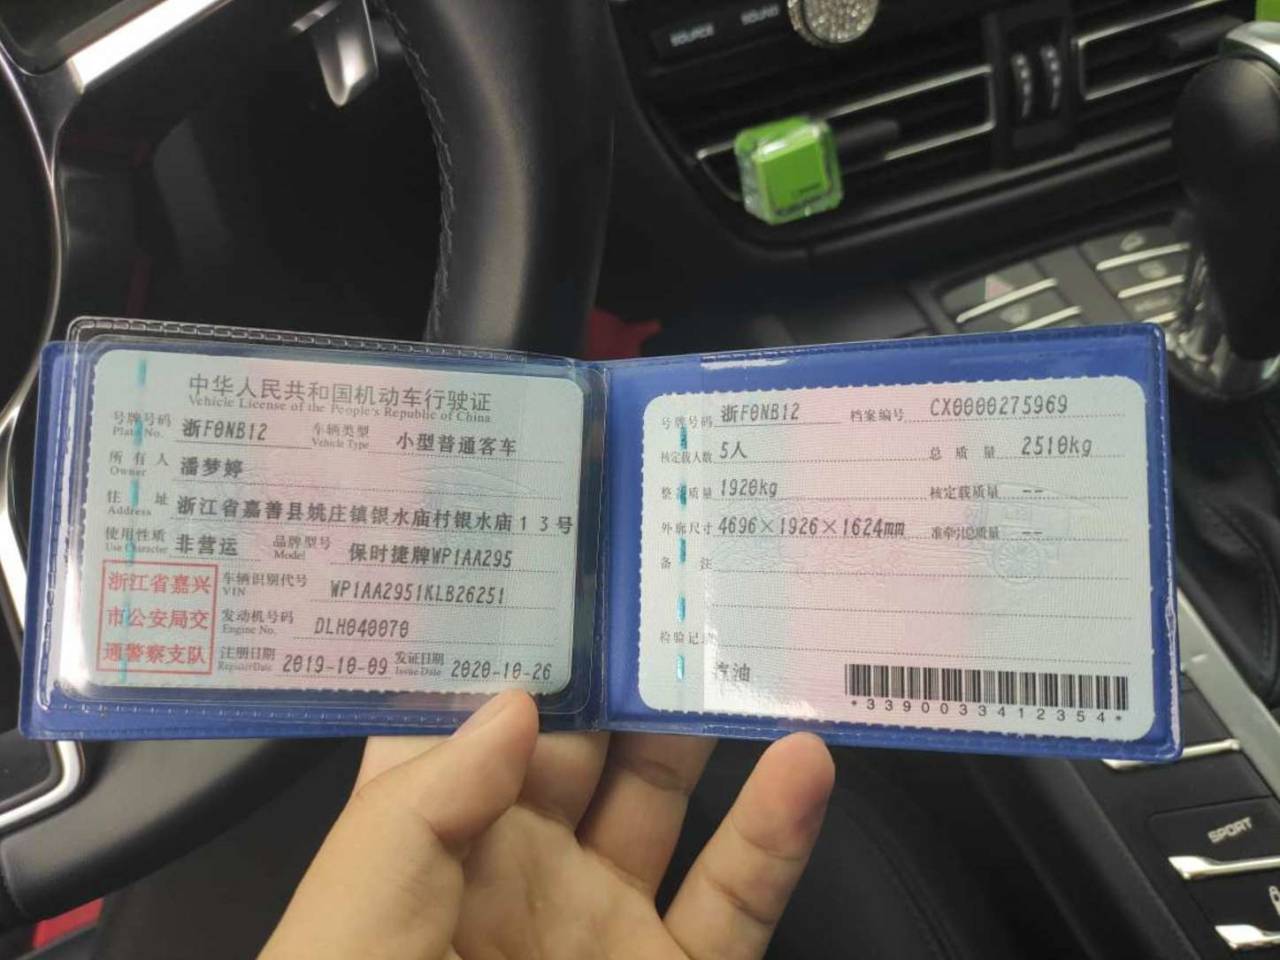 SOURCE
SOUND
中华人民共和国机动车行驶证
Vehicle License of the People's Republic of China
号牌号码 浙F0NB12 车辆类型 小型普通客车
Plate No. Vehicle Type
所有人 潘梦婷
Owner
住址 浙江省嘉善县姚庄镇银水庙村银水庙13号
Address
使用性质 非营运 品牌型号 保时捷牌WP1AA295
Use Character Model
浙江省嘉兴
市公安局交
通警察支队
车辆识别代号 WP1AA2951KLB26251
VIN
发动机号码 DLH040070
Engine No.
注册日期 2019-10-09 发证日期 2020-10-26
Register Date Issue Date
号牌号码 浙F0NB12 档案编号 CX0000275969
核定载人数 5人 总质量 2510kg
整备质量 1920kg 核定载质量 --
外廓尺寸 4696×1926×1624mm 准牵引总质量 --
备注
检验记录
汽油
*3390033412354*
SPORT